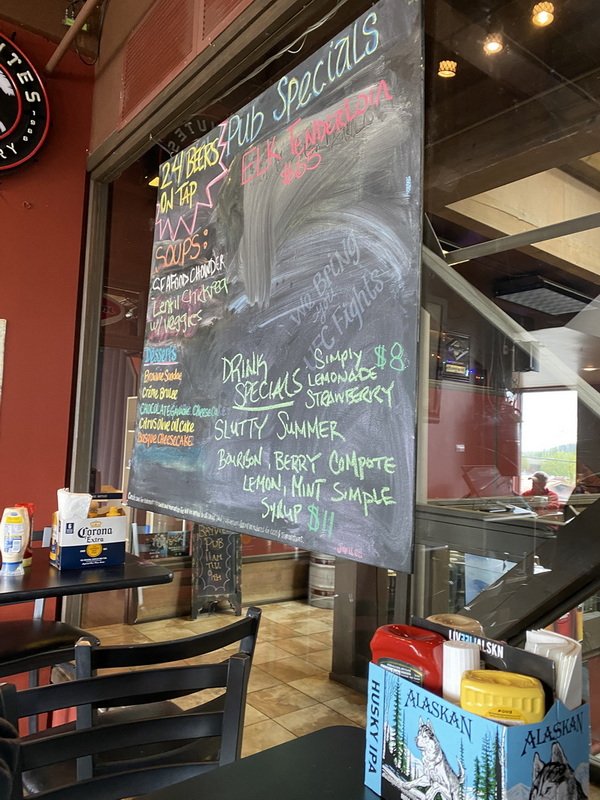 UTES
RY
Pub Specials
24 BEERS
ON TAP
ELK TENDERLOIN
$65
SOUPS:
SEAFOOD CHOWDER
Lentil Chickpea
w/ Veggies
We Bring
UFC Fights
Desserts
Brownie Sundae
Crème Brulee
CHOCOLATE GANACHE CHEESECAKE
Citrus Olive oil Cake
Basque CHEESECAKE
DRINK
SPECIALS
Simply $8
LEMONADE
STRAWBERRY
SLUTTY SUMMER
BOURBON, BERRY COMPOTE
LEMON, MINT SIMPLE
SYRUP $11
PUB
Corona
Extra
LIVE
ALSKN
HUSKY IPA
ALASKAN
ALASKAN